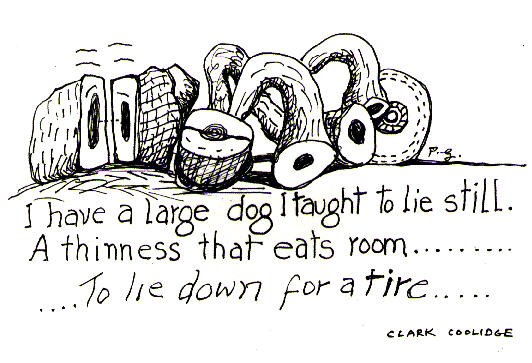 P.G.
I have a large dog I taught to lie still.
A thinness that eats room.........
....To lie down for a tire.....
CLARK COOLIDGE